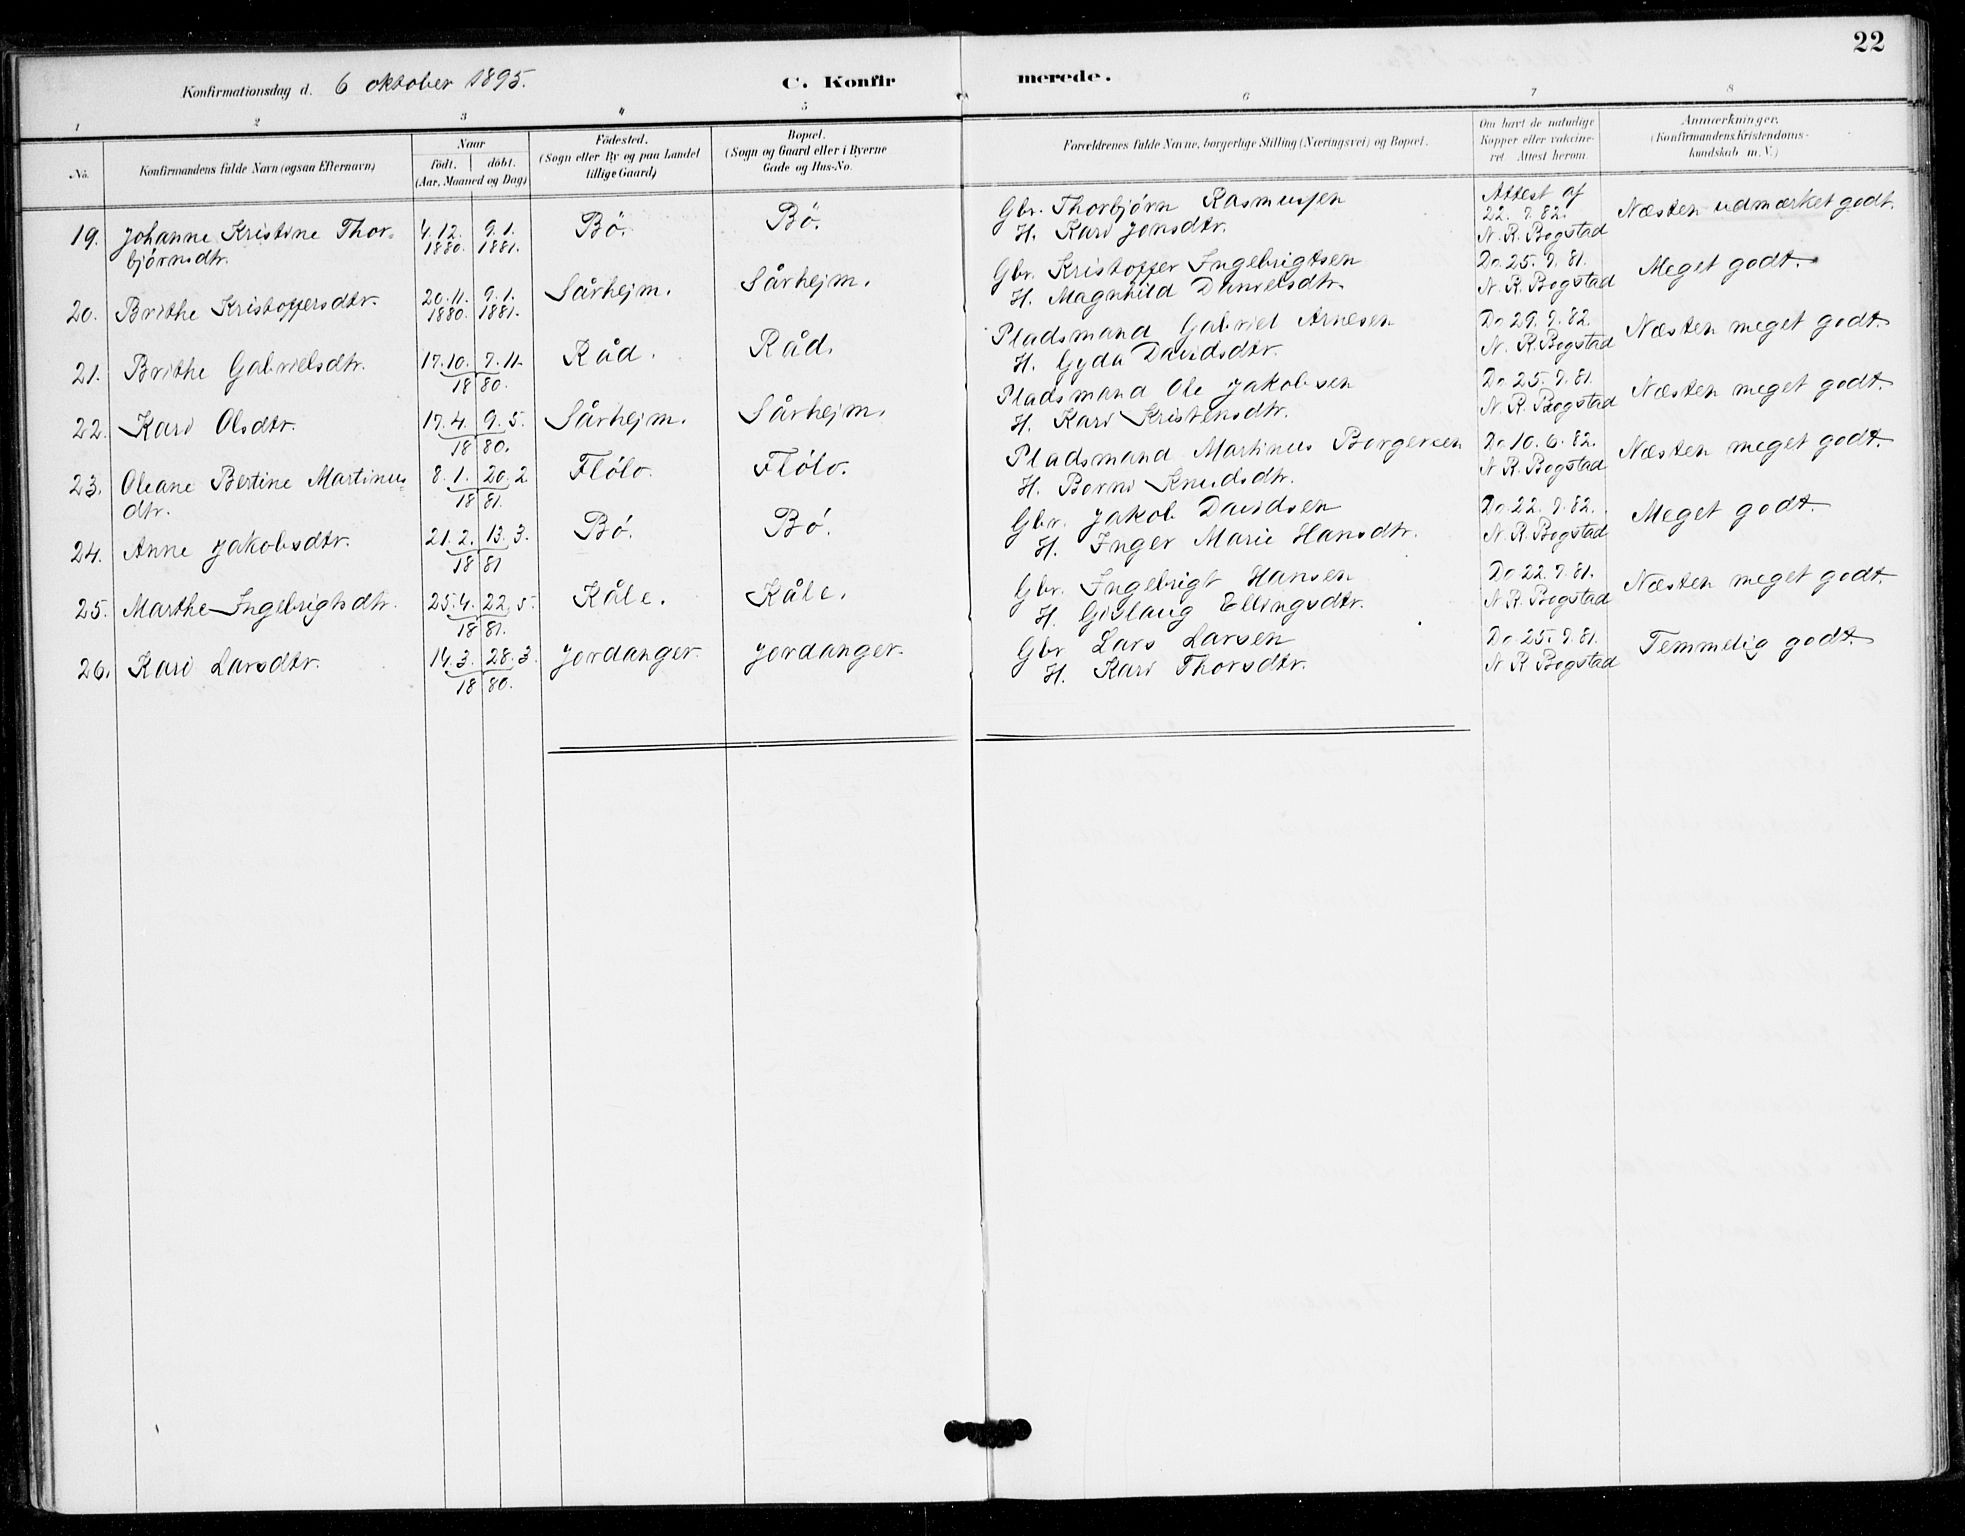 22
Konfirmationsdag d. 6 oktober 1895.
C. Konfirmerede.
1 2 3 4 5 6 7 8
No.
Konfirmandens fulde Navn (ogsaa Efternavn)
Naar
födt. döbt.
(Aar, Maaned og Dag)
Födested.
(Sogn eller By og paa Landet
tillige Gaard)
Bopæl.
(Sogn og Gaard eller i Byerne
Gade og Hus-No.
Forældrenes fulde Navne, borgerlige Stilling (Næringsvei) og Bopæl.
Om havt de naturlige
Kopper eller vakcine-
ret Attest herom.
Anmærkninger.
(Konfirmandens Kristendoms-
kundskab m. V.)
19. Johanne Kristine Thor- 4.12. 9.1. Bö. Bö. Gbr. Thorbjørn Rasmussen Attest af Næsten udmærket godt.
bjørnsdtr. 1880. 1881. H. Kari Jonsdtr. 22. 9. 82.
N. R. Bogstad
20. Brithe Kristoffersdtr. 20.11. 9.1. Sårhejm. Sårhejm. Gbr. Kristoffer Ingebrigtsen Do 25. 9. 81. Meget godt.
1880. 1881. H. Magnhild Danielsdtr. N. R. Bogstad
21. Brithe Gabrielsdtr. 17.10. 7.11. Råd. Råd. Pladsmand Gabriel Arnesen Do 29. 9. 82. Næsten meget godt.
18 80. H. Gyda Davidsdtr. N. R. Bogstad
22. Kari Olsdtr. 17.4. 9.5. Sårhejm. Sårhejm. Pladsmand Ole Jakobsen Do 25. 9. 81. Næsten meget godt.
18 80. H. Kari Kristensdtr. N. R. Bogstad
23. Oleane Bertine Martinus 8.1. 20.2 Flölo. Flölo. Pladsmand Martinus Borgersen Do 10. 6. 82. Næsten meget godt.
dtr. 18 81. H. Borni Knudsdtr. N R. Bogstad
24. Anne Jakobsdtr. 21.2. 13.3. Bö. Bö. Gbr. Jakob Davidsen Do 22. 9. 82. Meget godt.
18 81 H. Inger Marie Hansdtr. N. R. Bogstad
25. Marthe Ingebrigtsdtr. 25.4. 22.5. Kåle. Kåle. Gbr. Ingebrigt Hansen Do 22. 9. 81. Næsten meget godt.
18 81. H. Gislaug Ellingsdtr. N. R. Bogstad
26. Kari Larsdtr. 14.3. 28.3. Jordanger. Jordanger. Gbr Lars Larsen Do 25. 9. 81. Temmelig godt.
18 80. H. Kari Thorsdtr. N R Bogstad